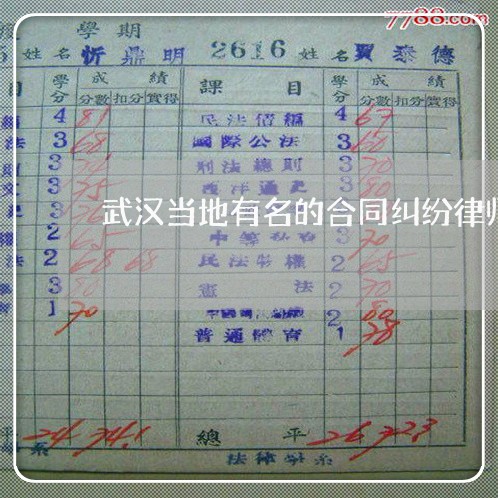 7788.com
學 期
姓 名 忻鼎明 2616 姓 名 賈泰德
目 學分 成績 課 目 學分 成績
分數 扣分 實得 分數 扣分 實得
4 81 民法債編 4 67
法 3 68 國際公法 3 60
3 刑法總則 3 70
文 3 75 西洋通史 3 80
武汉当地有名的合同纠纷律师
2 65 3 70
法 2 68 68 民法物權 2 65
3 80 憲法 2 70
1 70 2 80
普通體育 1 78
平 24 74.1 總 平 26 72.3
系 法律學系